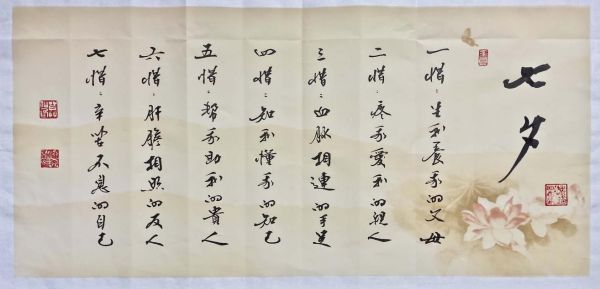 七夕
一惜：生我养我的父母
二惜：疼我爱我的亲人
三惜：血脉相连的手足
四惜：知我懂我的知己
五惜：帮我助我的贵人
六惜：肝胆相照的友人
七惜：辛苦不息的自己